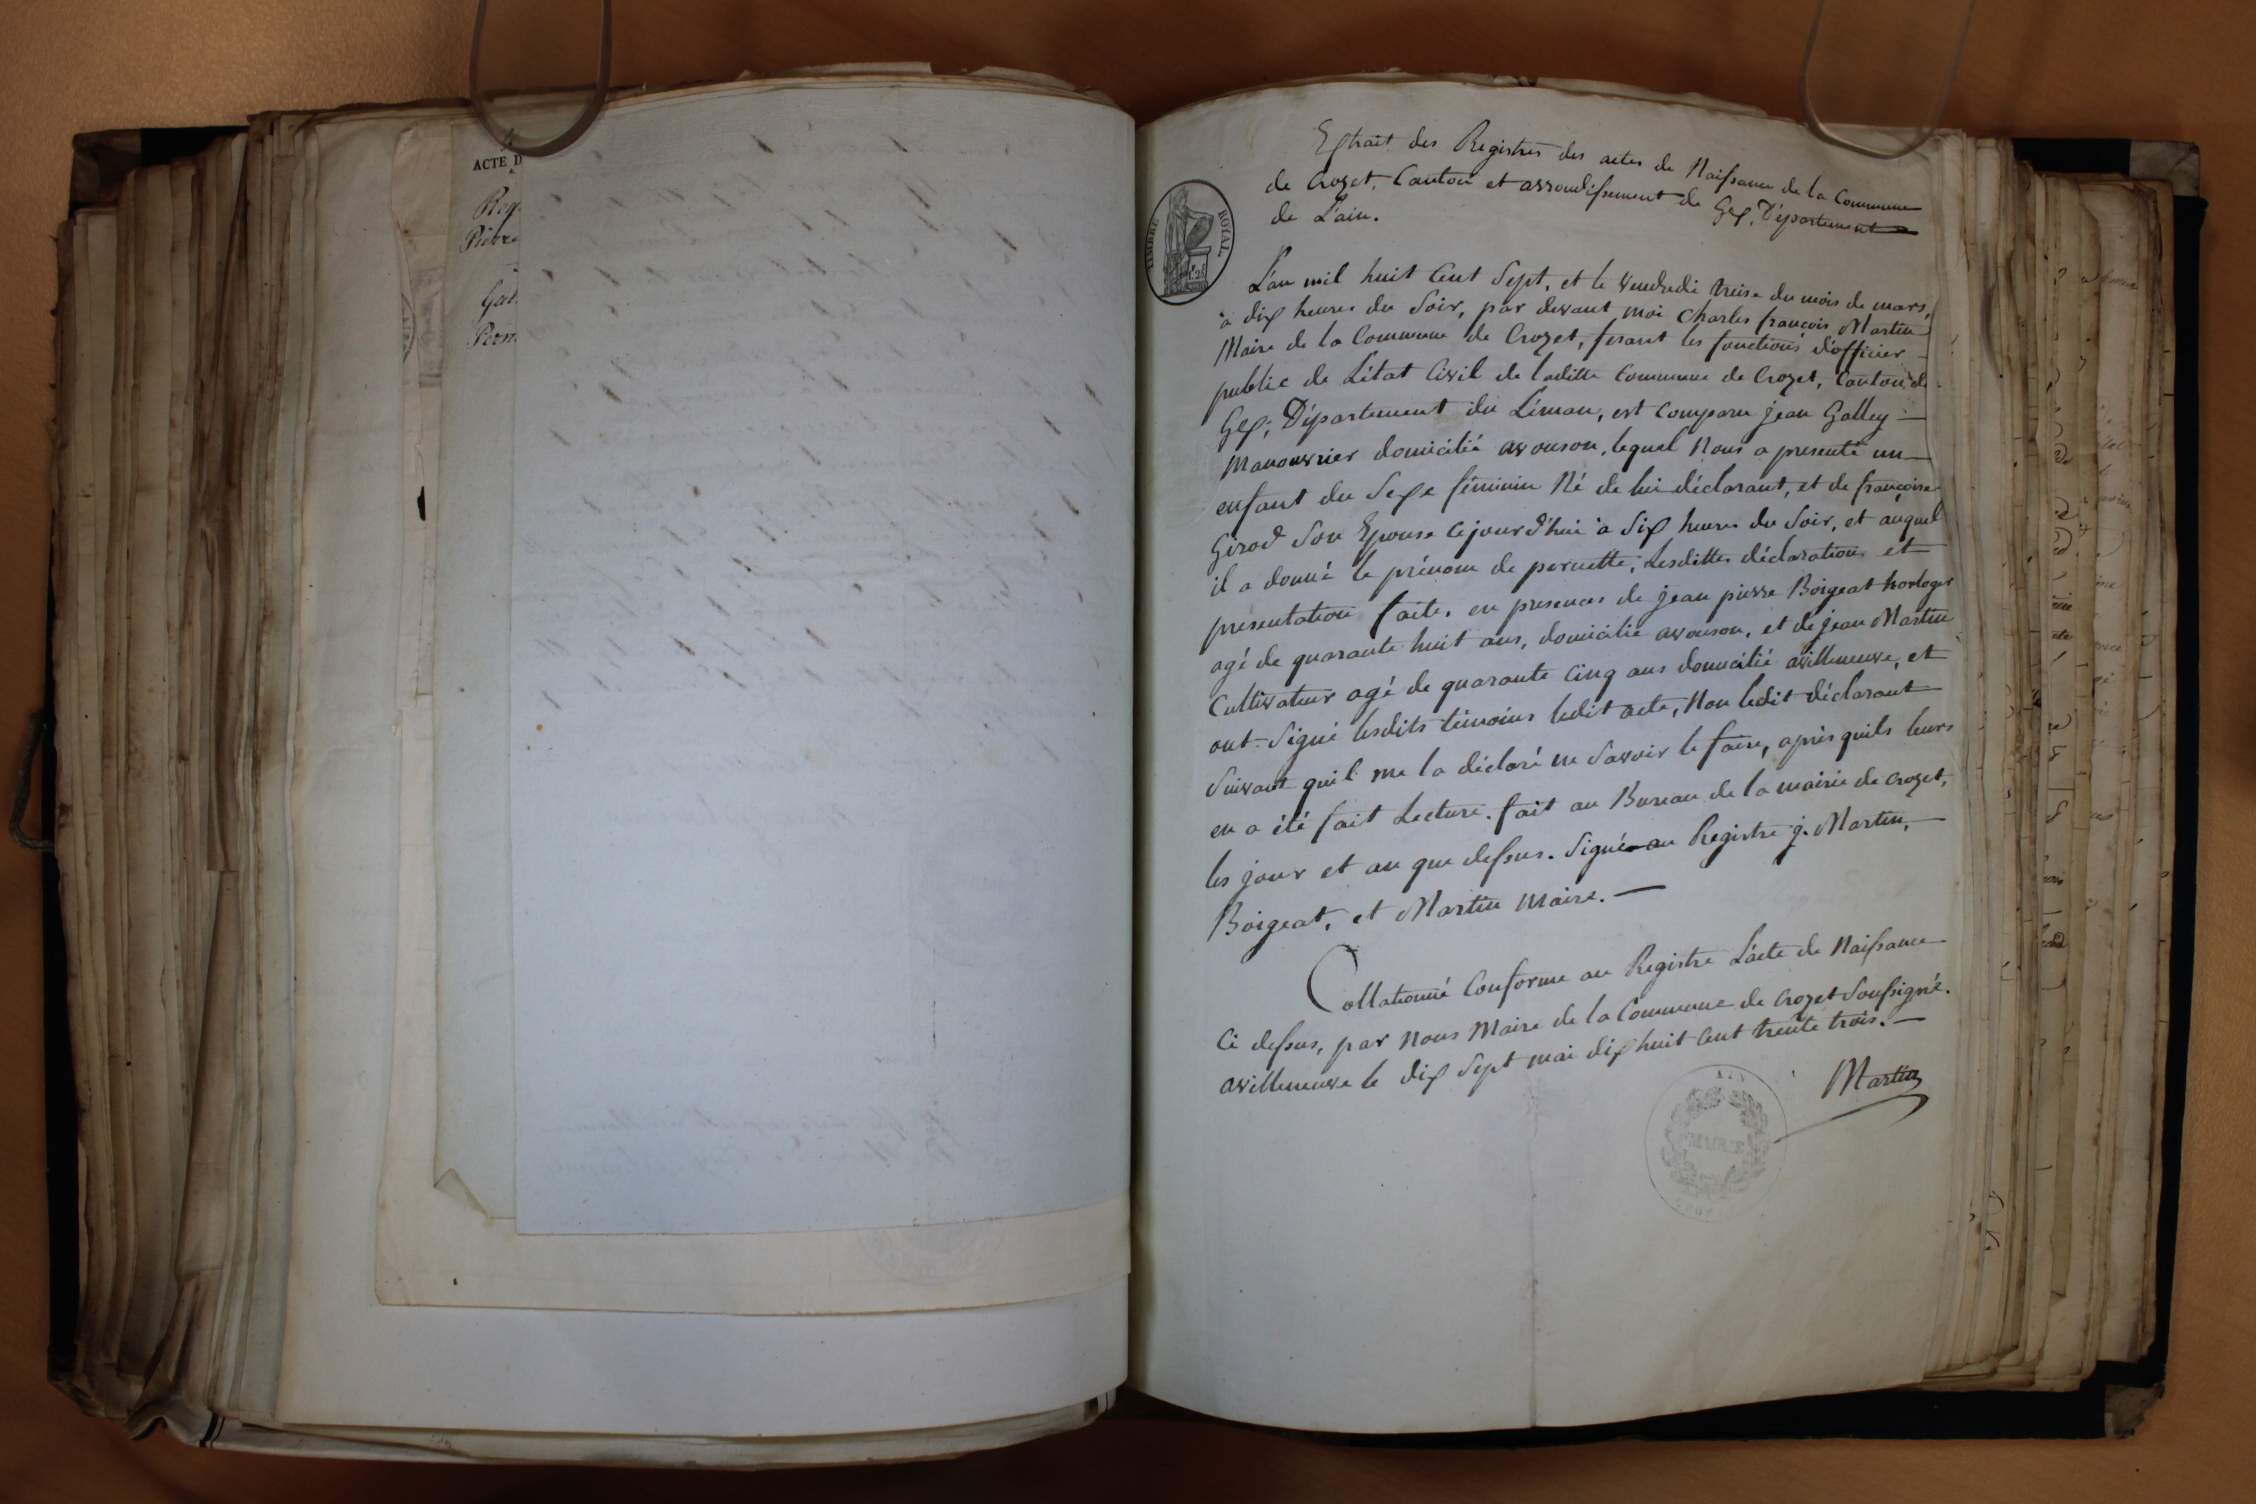 ACTE D
Extrait des Registres des actes de Naissance de la Commune
de Crozet, Canton et arrondissement de Gex, Département
de L'ain.
TIMBRE ROYAL
L'an mil huit Cent Sept, et le Vendredi treize du mois de mars,
à dix heures du Soir, par devant moi Charles françois Martin
Maire de la Commune de Crozet, fesant les fonctions d'officier
public de L'état Civil de laditte Commune de Crozet, Canton de
Gex, Département du Léman, est comparu jean Galley
Manouvrier domicilié avouson, lequel Nous a presenté un
enfant du Sexe féminin Né de lui déclarant, et de françoise
Girod Son Epouse Cejourd'hui à Six heures du Soir, et auquel
il a donné le prénom de pernette, Lesdittes déclaration et
presentation faite, en presences de jean pierre Boigeat horloger
agé de quarante huit ans, domicilié avouson, et de jean Martin
Cultivateur agé de quarante Cinq ans domicilié avilleneuve, et
ont Signé lesdits témoins ledit acte, Non ledit déclarant
Suivant quil me la déclaré ne Savoir le faire, après quils leurs
en a été fait Lecture. fait au Bureau de la mairie de Crozet,
les jour et an que dessus. Signé au Registre j. Martin,
Boigeat, et Martin Maire.
Collationné Conforme au Registre L'acte de Naissance
Ci dessus, par Nous Maire de la Commune de Crozet Soussigné.
avilleneuve le dix Sept mai dix huit Cent trente trois.
Martin
AIN
MAIRIE